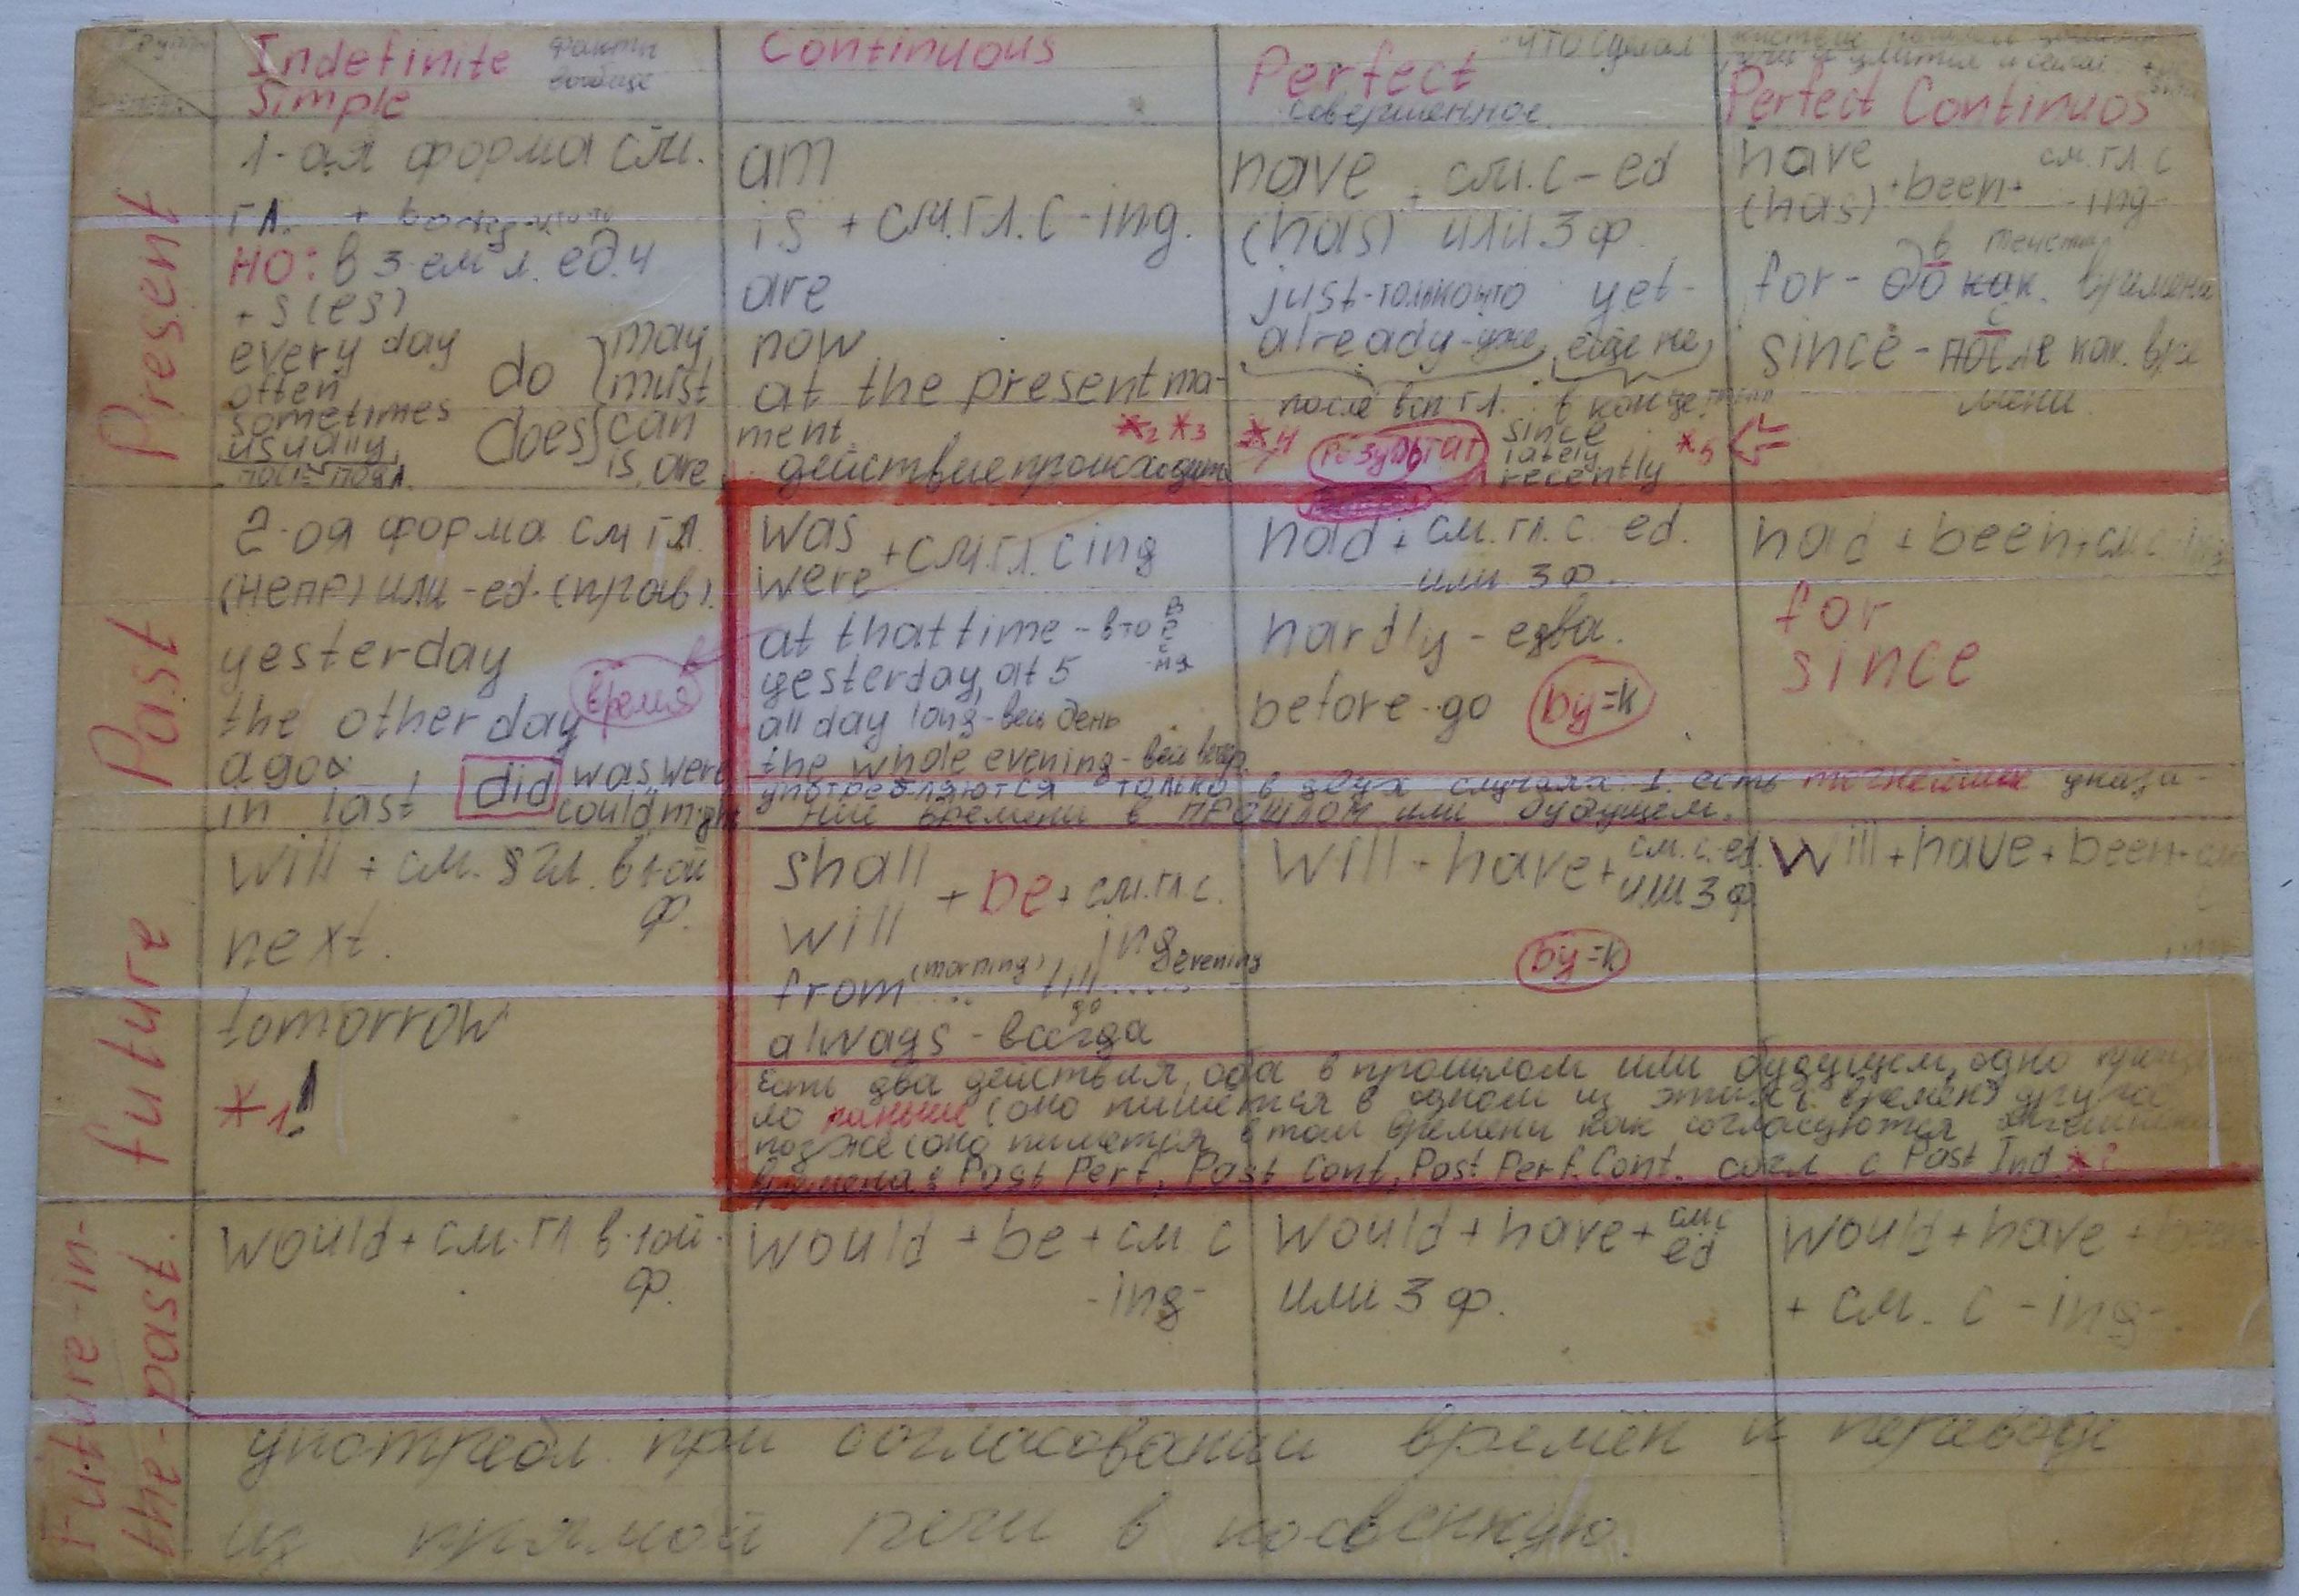 Indefinite факты
Simple вообще
Continuous
Perfect что сделал
совершенное
Perfect Continuos
Present
1-ая форма см.
гл. +
НО: в 3-ем л. ед.ч
+ s(es)
every day
often
sometimes
usually
do
does
may
must
can
is, are
am
is + см.гл. с -ing.
are
now
at the present ma-
ment.
*2 *3
действие происходит
have + см. с -ed
(has) или 3 ф.
just-только что yet-
already-уже, еще не
после всп гл. в конце
*4 результат since
lately
recently *5
have + been + см. гл. с
(has) -ing-
в течение
for - до как. времени
с
since - после как. вре
мени
Past
2-ая форма см гл.
(непр) или -ed. (прав).
yesterday
the other day
время в
ago
in last
did was, were
could might
was + см.гл. с ing
were
at that time - в то время
yesterday, at 5
all day long - весь день
the whole evening - весь вечер
had + см. гл. с. ed.
или 3 ф.
hardly - едва.
before - до by=к
had + been + см. с ing
for
since
употребляются только в двух случаях 1. есть точнейшее указа-
ние времени в прошлом или будущем.
future
will + см. гл. в 1-ой
ф.
next.
tomorrow
*1!
shall
will + be + см. гл. с.
ing
from (morning) till evening
до
always - всегда
will + have + см. с. ed.
или 3 ф
by=к
will + have + been + см
с
ing
Есть два действия, оба в прошлом или будущем, одно
ло раньше (оно пишется в одном из этих времён) друга
позже (оно пишется в том времени как согласуются
времена: Past Perf, Past Cont, Past Perf. Cont. согл с Past Ind. *?
Future-in-
the-past.
would + см. гл в 1ой.
ф.
would + be + см с
-ing-
would + have + см с
ed
или 3 ф.
would + have + been
+ см. с -ing-.
употребл. при согласовании времён и переводе
из прямой речи в косвенную.